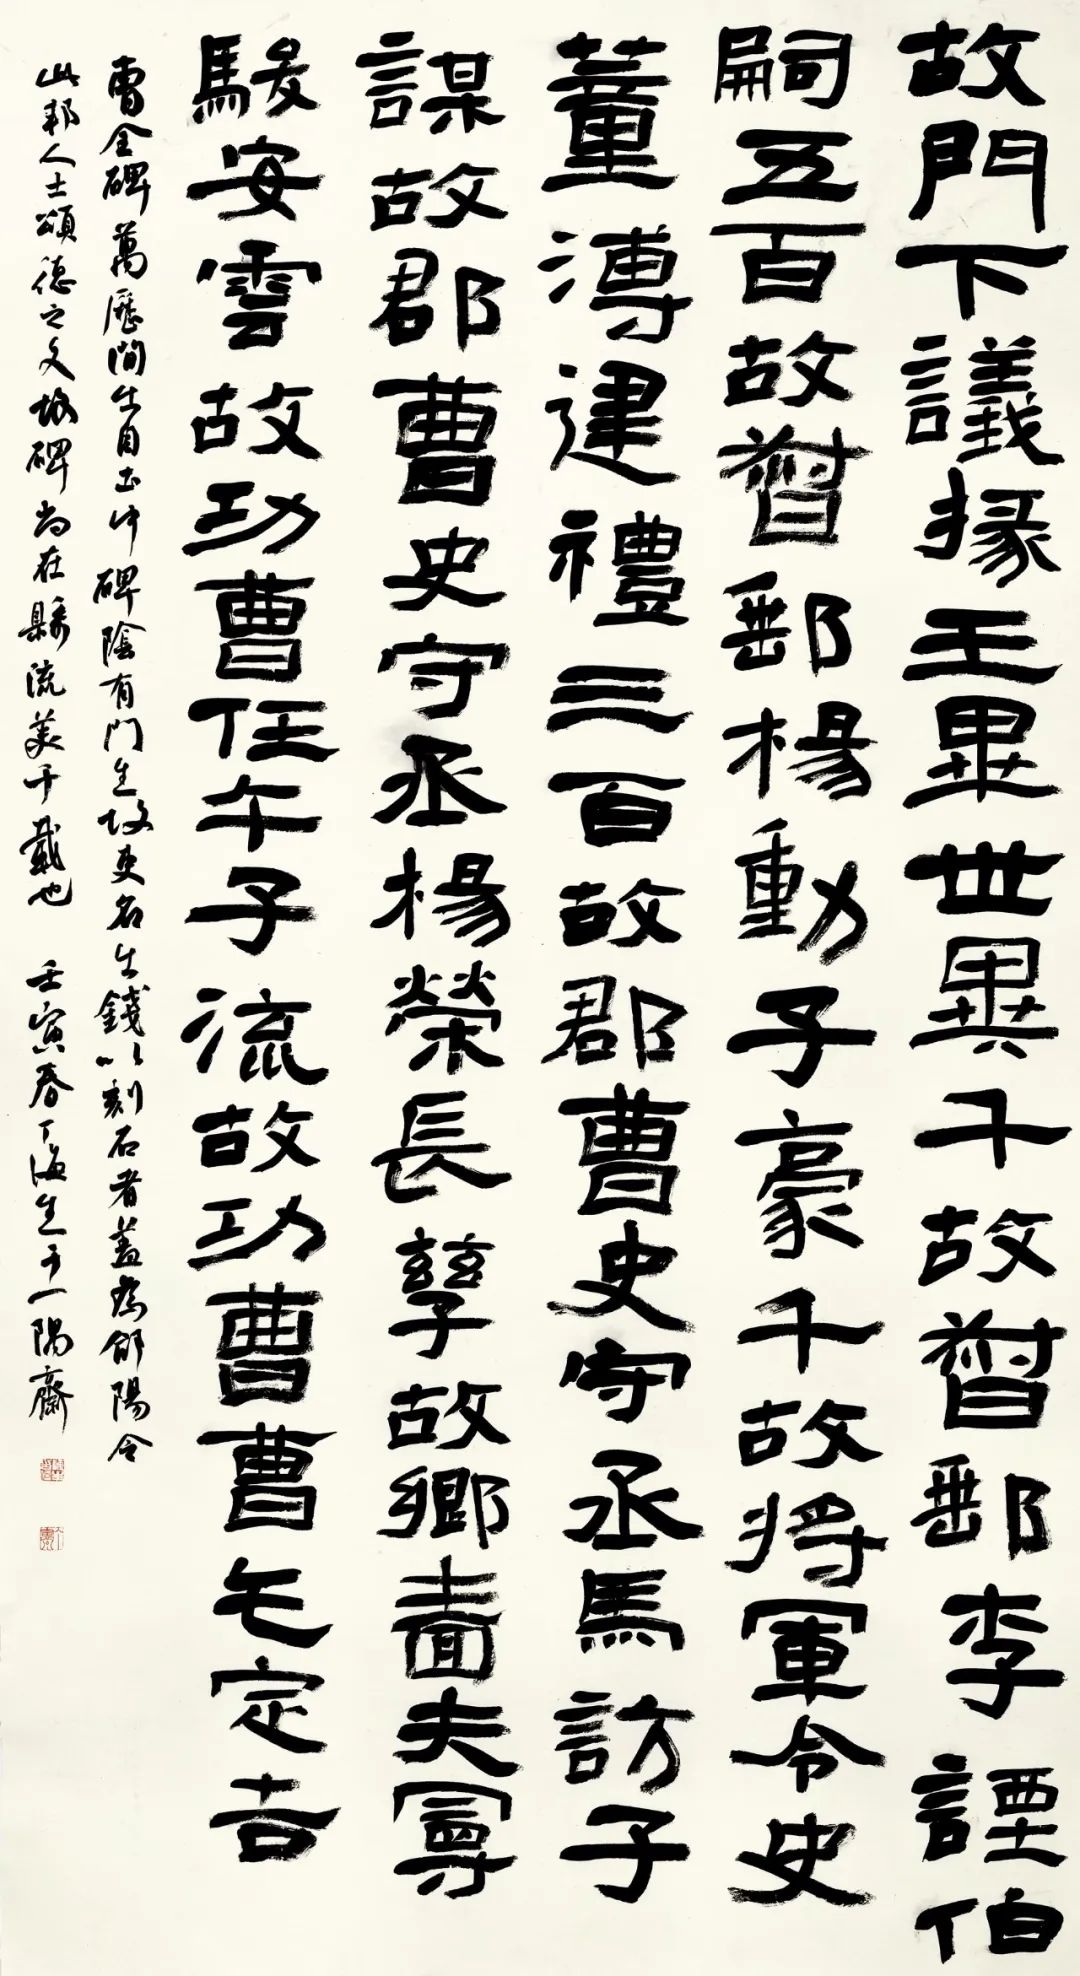 故門下議掾王畢世異千故督郵李諲伯
嗣五百故督郵楊動子豪千故將軍令史
董溥建禮三百故郡曹史守丞馬訪子
謀故郡曹史守丞楊榮長孳故鄉嗇夫曼
駿安雲故功曹任午子流故功曹曹屯定吉
曹全碑萬曆間出自土中碑陰有门生故吏名出錢以刻石者蓋為郃陽令
此邦人士頌德之文故碑尚在縣流美千載也 壬寅春丁海生于一隅齋